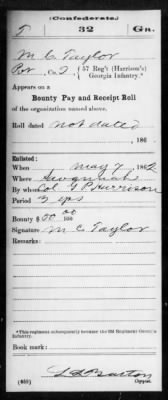 (Confederate.)
T 32 Ga.
M. C. Taylor
Pvt, Co. I, { 57 Reg't (Harrison's)
Georgia Infantry.*
Appears on a
Bounty Pay and Receipt Roll
of the organization named above.
Roll dated not dated
, 186
Enlisted:
When May 7, 1862
Where Savannah
By whom Col. G P Harrison
Period 3 yrs
Bounty $50 00/100
Signature M C Taylor
Remarks:
*This regiment subsequently became the 32d Regiment Georgia Infantry.
Book mark:
(455)
Copyist.